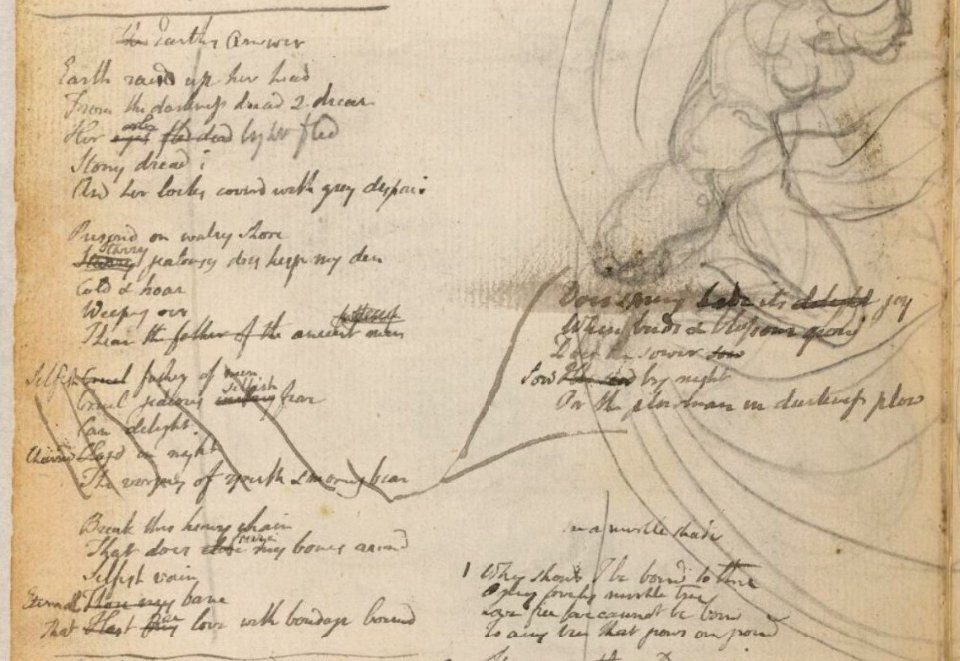 The Earths Answer
Earth raisd up her head
From the darkness dread & drear
Her orbs eyes fled dead light fled
Stony dread;
And her locks coverd with grey despair
Prisond on watry shore
Starry jealousy does keep my den
Cold & hoar
Weeping oer
I hear the father of the ancient men
Selfish Cruel father of men
Cruel jealous selfish fear
Can delight
Chaind Closd in night
The virgins of youth & morning bear
Does spring hide its delight joy
When buds & blossoms grow
Does the sower sow
Sow by night
Or the plowman in darkness plow
Break this heavy chain
That does close freeze my bones around
Selfish vain
Eternal Thou my bane
That Hast free love with bondage bound
in a mirtle shade
1 Why should I be bound to thee
O my lovely mirtle tree
Love free love cannot be bound
To any tree that grows on ground